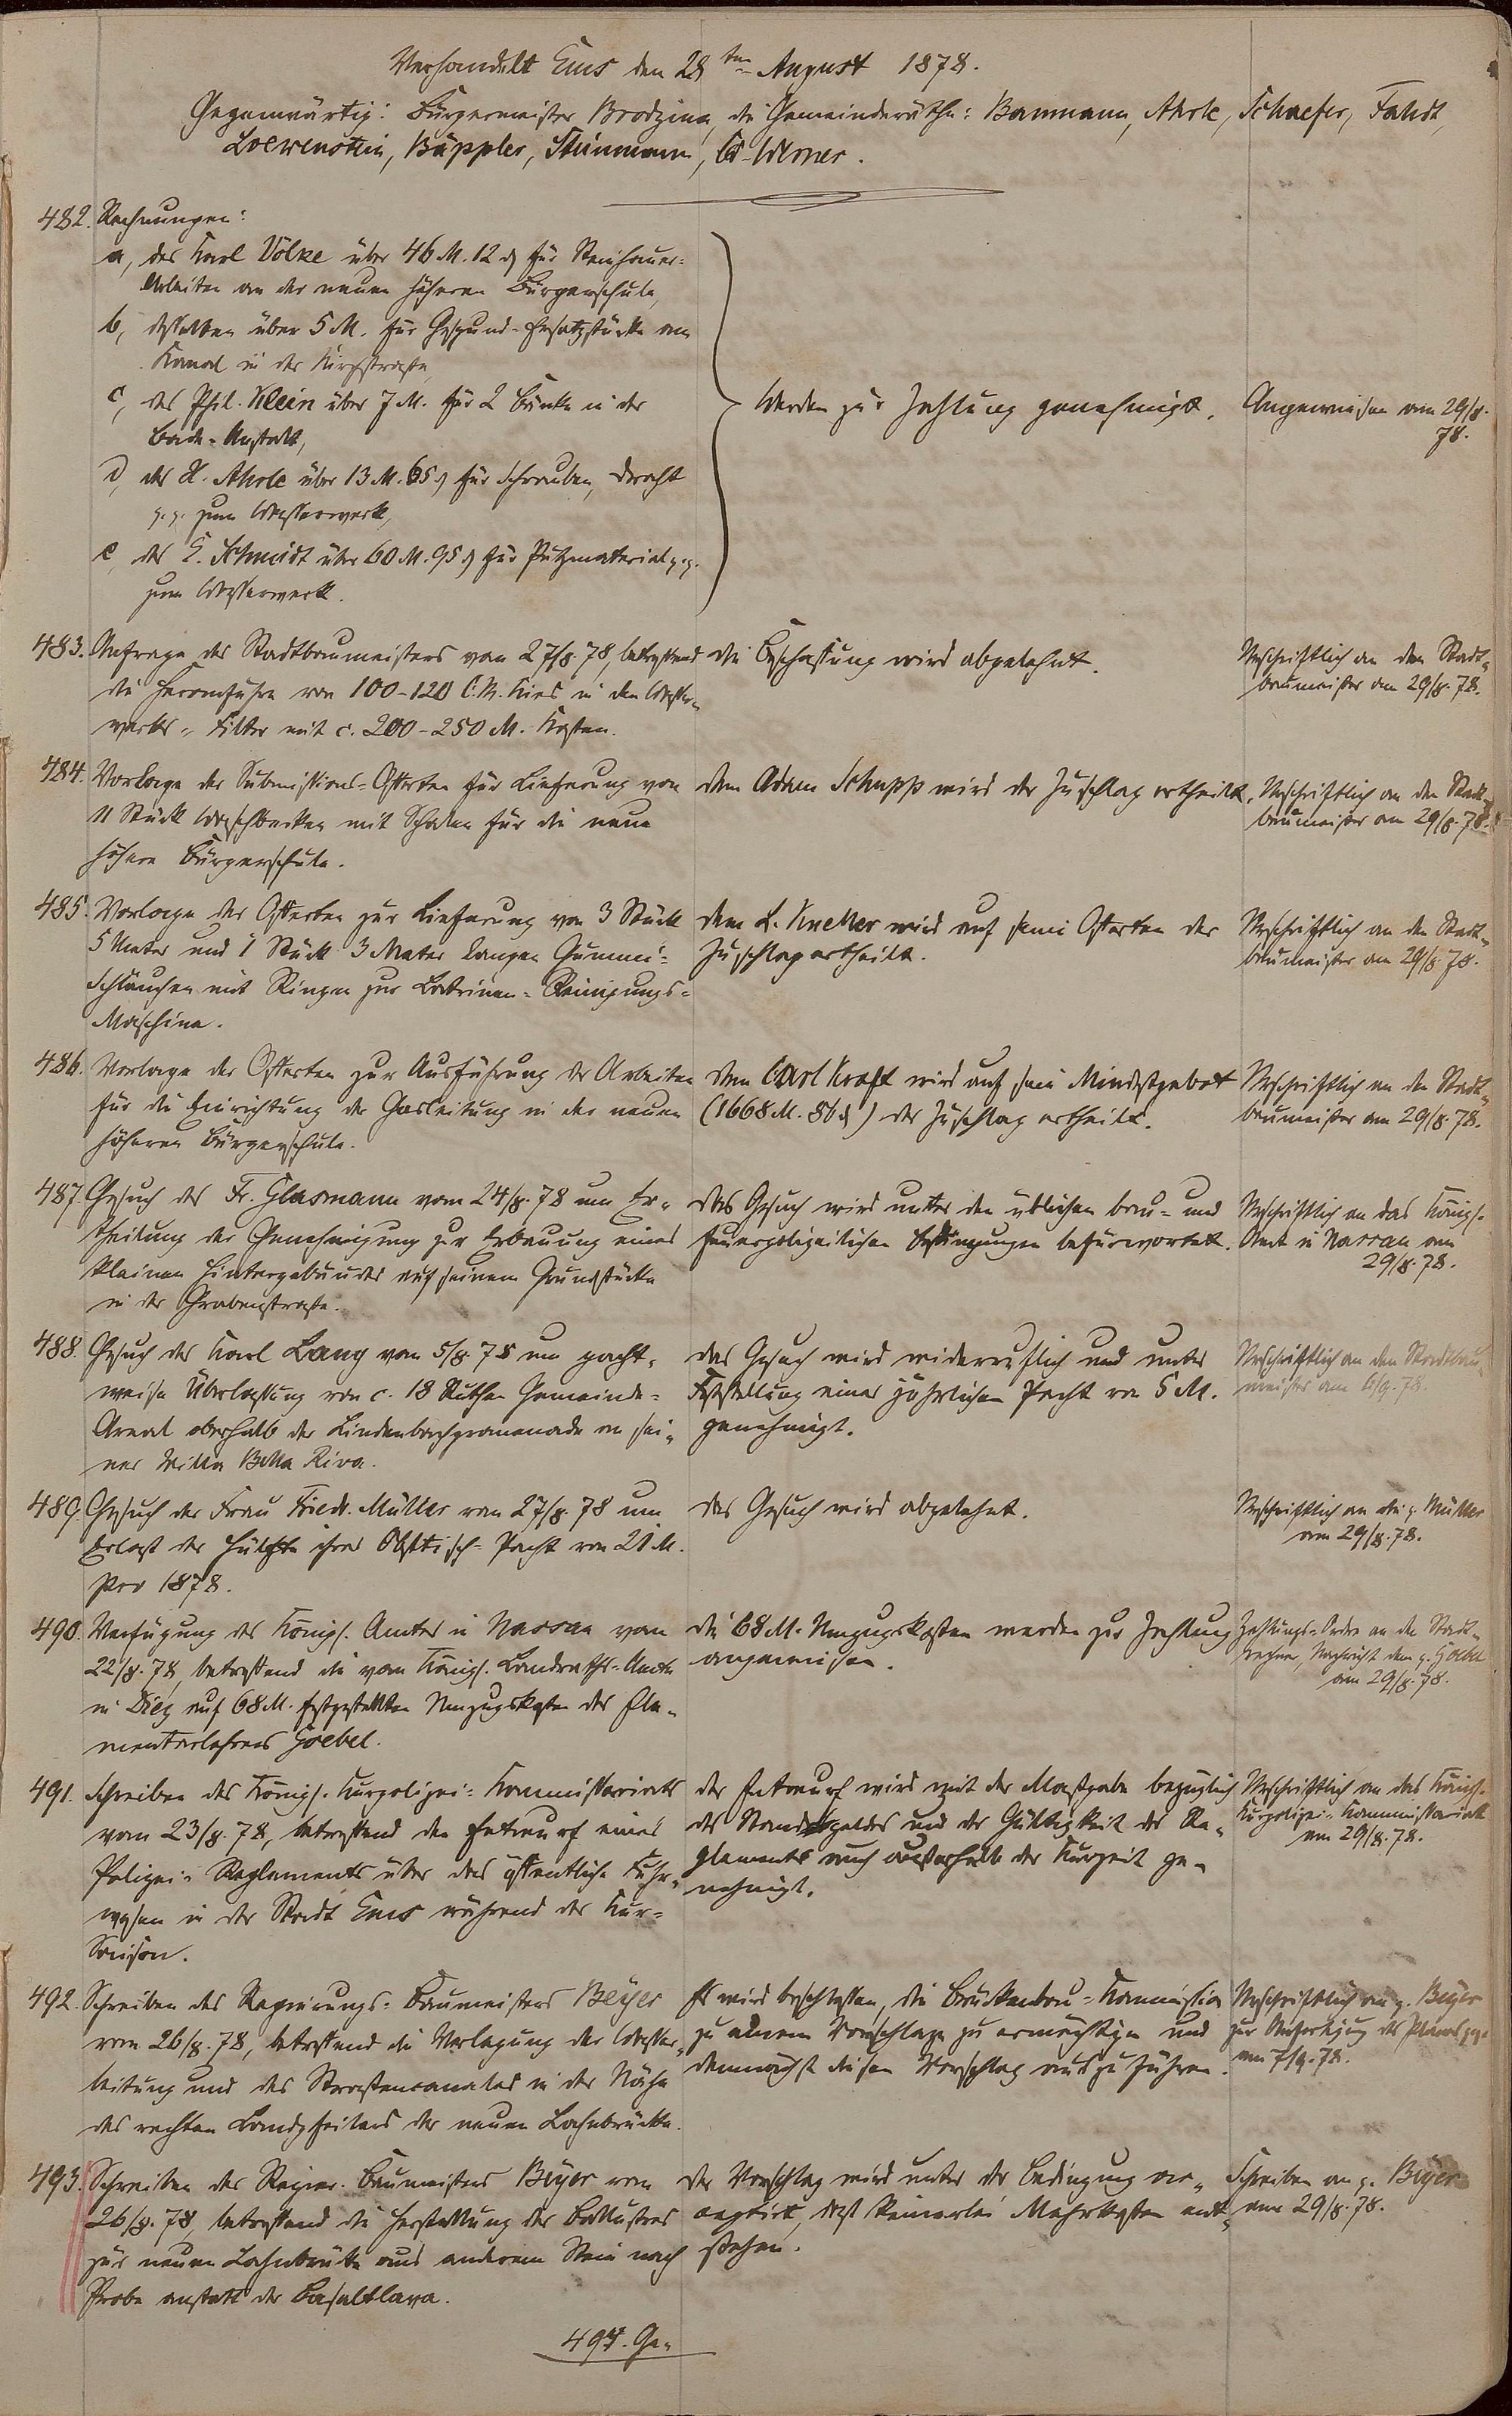 Verhandelt Ems den 28ten August 1878.
Gegenwärtig: Bürgermeister Brodzina, die Gemeinderäthe: Baumann, Ahrle, Schaefer, Fahdt,
Loewenstein, Bäppler, Steinmann, Werner.
482. Rechnungen:
a, des Karl Völke über 46 M. 12 ₰ für Steinhauer-
Arbeiten an der neuen höheren Bürgerschule,
b, desselben über 5 M. für Gesund-Ersatzstücke am
Kanal in der Kirchstraße,
c, des Phil. Klein über 7 M. für 2 Bänke in der
Bade-Anstalt,
d, des H. Ahrle über 13 M. 65 ₰ für Schrauben, Draht
p.p. zum Wasserwerk,
e, des E. Schmidt über 60 M. 95 ₰ für Putzmaterial p.p.
zum Wasserwerk.
Werden zur Zahlung genehmigt.
Angewiesen am 29/8.
78.
483. Anfrage des Stadtbaumeisters vom 27/8. 78, betreffend
die Heranfuhre von 100-120 C.M. Kies in den Wasser-
werks-Filter mit c. 200-250 M. Kosten.
Die Beschaffung wird abgelehnt.
Urschriftlich an den Stadt-
baumeister am 29/8. 78.
484. Vorlage der Submissions-Offerten für Lieferung von
11 Stück Waschbecken mit Schalen für die neue
höhere Bürgerschule.
Dem Adam Schupp wird der Zuschlag ertheilt.
Urschriftlich an den Stadt-
baumeister am 29/8. 78.
485. Vorlage der Offerten zur Lieferung von 3 Stück
5 Meter und 1 Stück 3 Meter langen Gummi-
Schläuchen mit Ringen zur Latrinen-Reinigungs-
Maschine.
Dem L. Kneller wird auf seine Offerten der
Zuschlag ertheilt.
Urschriftlich an den Stadt-
baumeister am 29/8. 78.
486. Vorlage der Offerten zur Ausführung der Arbeiten
für die Einrichtung der Gasleitung in der neuen
höheren Bürgerschule.
Dem Carl Kraft wird auf sein Mindestgebot
(1668 M. 86 ₰) der Zuschlag ertheilt.
Urschriftlich an den Stadt-
baumeister am 29/8. 78.
487. Gesuch des Fr. Glasmann vom 24/8. 78 um Er-
theilung der Genehmigung zur Erbauung eines
kleinen Hintergebäudes auf seinem Grundstücke
in der Grabenstraße.
Das Gesuch wird unter den üblichen bau- und
feuerpolizeilichen Bedingungen befürwortet.
Urschriftlich an das Königl.
Amt in Nassau am
29/8. 78.
488. Gesuch des Karl Lang vom 5/8. 78 um pacht-
weise Überlassung von c. 18 Ruthen Gemeinde-
Areal oberhalb der Lindenbachpromenade an sei-
ner Villa Bella Riva.
Das Gesuch wird widerruflich und unter
Feststellung einer jährlichen Pacht von 5 M.
genehmigt.
Urschriftlich an den Stadtbau-
meister am 6/9. 78.
489. Gesuch der Frau Friedr. Müller vom 27/8. 78 um
Erlaß der Hälfte ihrer Obsttisch-Pacht von 21 M.
pro 1878.
Das Gesuch wird abgelehnt.
Urschriftlich an die p. Müller
am 29/8. 78.
490. Verfügung des Königl. Amtes in Nassau vom
22/8. 78, betreffend die vom Königl. Landraths-Amte
in Diez auf 68 M. festgestellten Umzugskosten des Ele-
mentarlehrers Goebel.
Die 68 M. Umzugskosten werden zur Zahlung
angewiesen.
Zahlungs-Ordre an den Stadt-
rechner, Nachricht dem p. Goebel
am 29/8. 78.
491. Schreiben des Königl. Kurpolizei-Kommissariats
vom 23/8. 78, betreffend den Entwurf eines
Polizei-Reglements über das öffentliche Fuhr-
wesen in der Stadt Ems während der Kur-
Saison.
Der Entwurf wird mit der Maßgabe bezüglich
des Standgeldes und der Gültigkeit des Re-
glements auch außerhalb der Kurzeit ge-
nehmigt.
Urschriftlich an das Königl.
Kurpolizei-Kommissariat
am 29/8. 78.
492. Schreiben des Regierungs-Baumeisters Beyer
vom 26/8. 78, betreffend die Verlegung der Wasser-
leitung und des Straßencanales in der Nähe
des rechten Landpfeilers der neuen Lahnbrücke.
Es wird beschlossen, die Brückenbau-Kommission
zu einem Vorschlage zu ermächtigen und
demnächst diesen Vorschlag auszuführen.
Urschriftlich an p. Beyer
zur Anfertigung des Planes p.p.
am 7/9. 78.
493. Schreiben des Regier. Baumeisters Beyer vom
26/8. 78, betreffend die Herstellung der Ballustres
zur neuen Lahnbrücke aus anderem Stein nach
Probe anstatt der Basaltlava.
Der Vorschlag wird unter der Bedingung ac-
ceptirt, daß keinerlei Mehrkosten ent-
stehen.
Schreiben an p. Beyer
am 29/8. 78.
494. Ge-